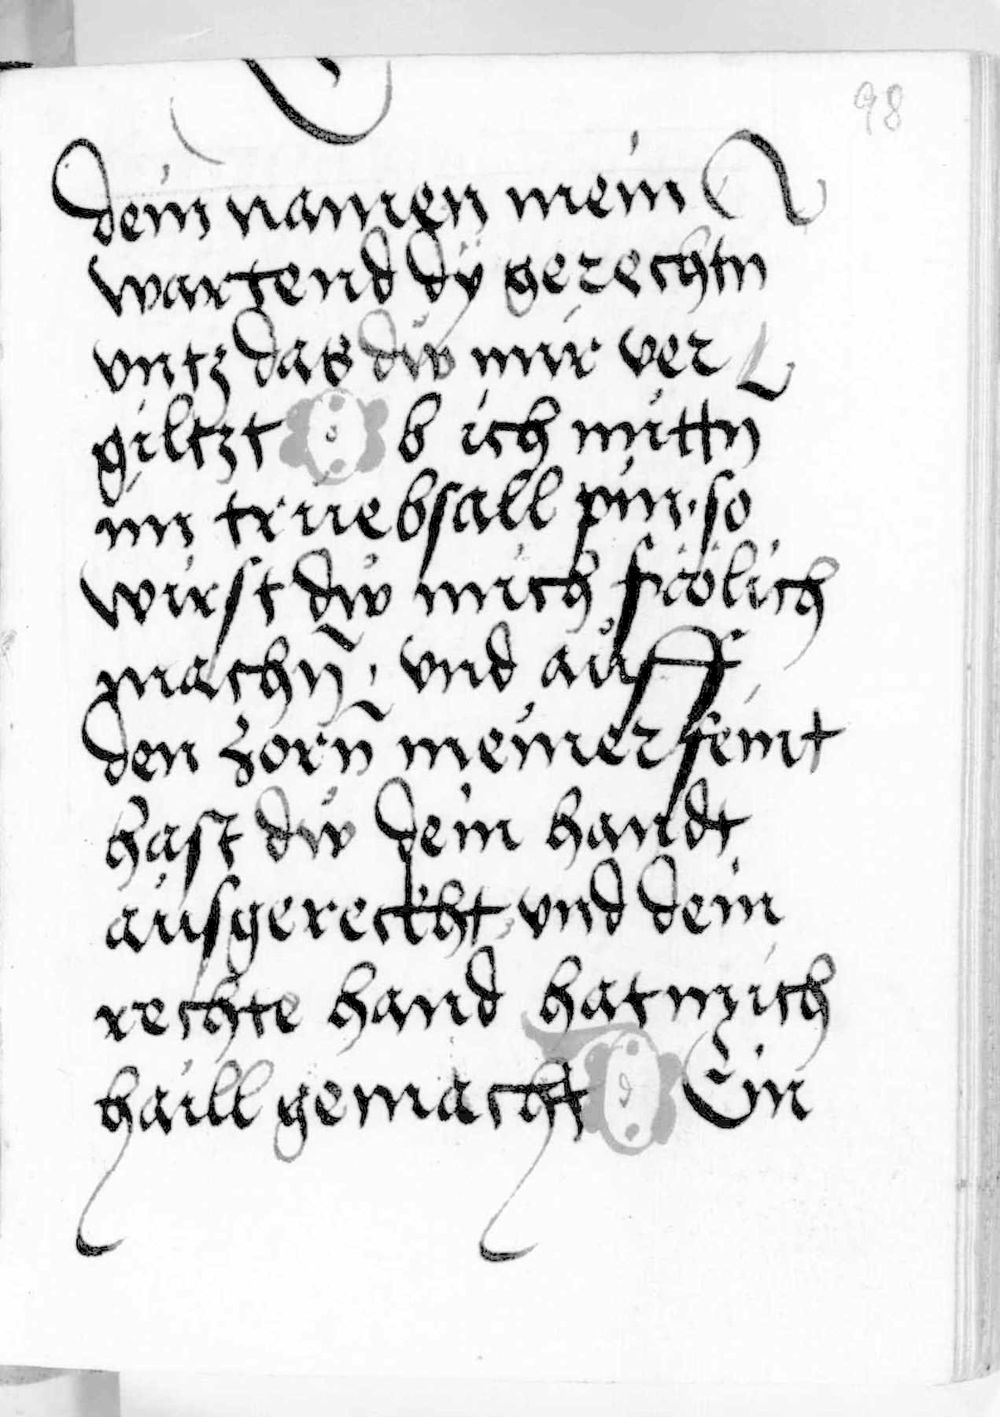 98
dein namen mein
wartend dÿ gerechtn
vntz das dw mir ver
giltzt Ob ich mittn
im truebsall pin · so
wirst dw mich frölich
machn̄ , vnd auff
den zorn̄ meiner feint
hast dw dein handt
ausgereckht vnd dein
rechte hand hat mich
haill gemacht D Ein